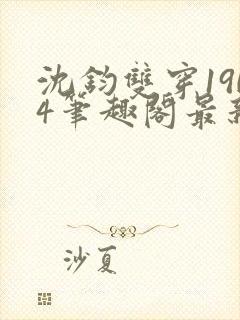 沈钧雙穿19
4筆趣閣最
沙夏